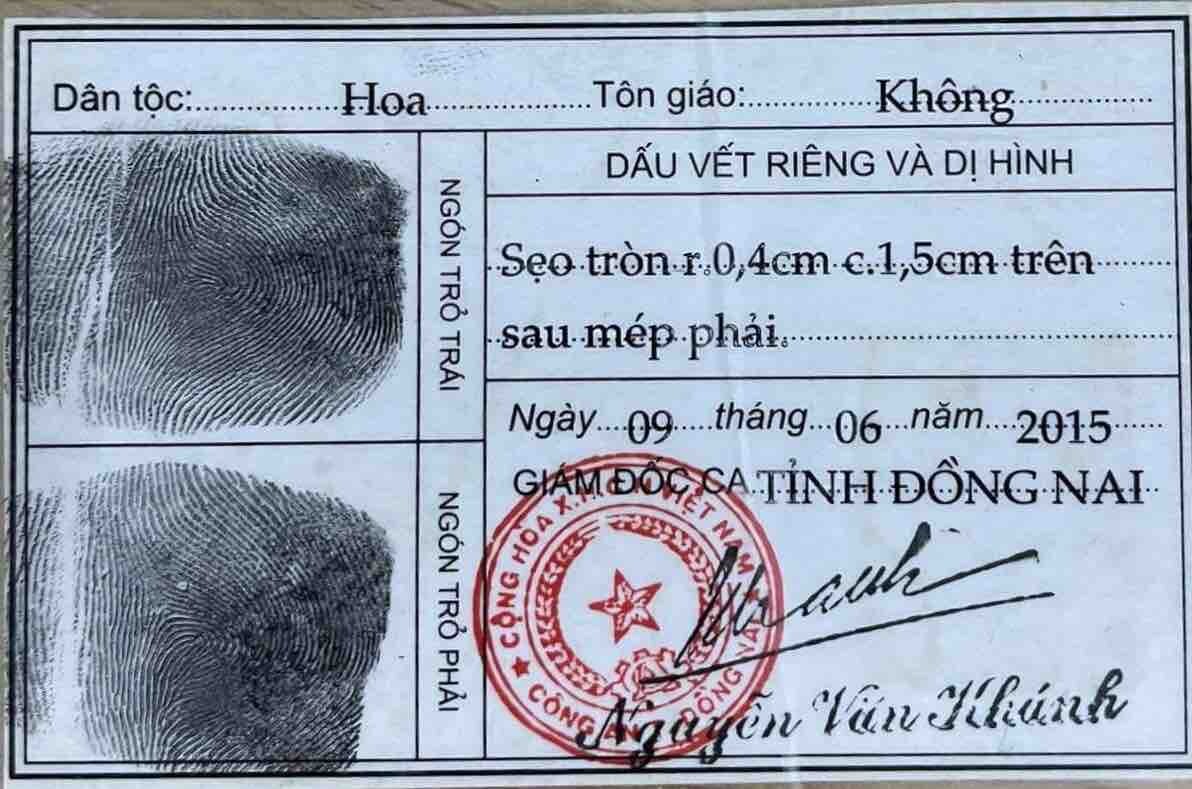 Dân tộc: Hoa Tôn giáo: Không
NGÓN TRỎ TRÁI
NGÓN TRỎ PHẢI
DẤU VẾT RIÊNG VÀ DỊ HÌNH
Sẹo tròn r.0,4cm c.1,5cm trên
sau mép phải.
Ngày 09 tháng 06 năm 2015
GIÁM ĐỐC CA TỈNH ĐỒNG NAI
CỘNG HÒA X.H.C.N VIỆT NAM
CÔNG AN ĐỒNG NAI
Nguyễn Văn Khánh